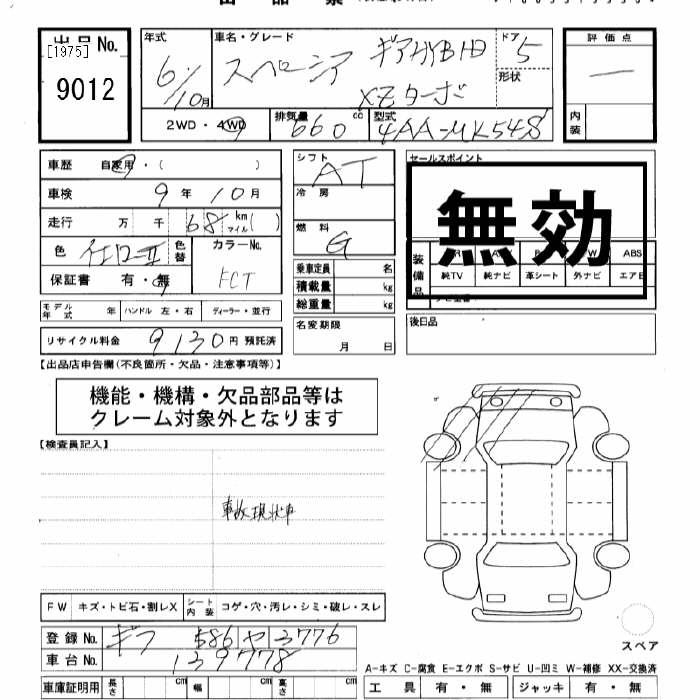 出品票
[1975]
出品No.
9012
年式 6/10月
車名・グレード スペーシア ギアHYBHD XZターボ
ドア 5
形状
評価点 —
内装
2WD・4WD
排気量 660 cc
型式 4AA-MK54S
車歴 自家用・( )
車検 9年10月
走行 万 千 68 km マイル( )
色 色替
カラーNo. FCT
保証書 有・無
モデル年式 年 ハンドル 左・右 ディーラー・並行
リサイクル料金 9130円 預託済
シフト AT
冷房
燃料 G
乗車定員 名
積載量 kg
総重量 kg
名変期限
月 日
セールスポイント
無効
装備品
ABS
純TV 純ナビ 革シート 外ナビ エアB
後日品
【出品店申告欄(不良箇所・欠品・注意事項等)】
機能・機構・欠品部品等は
クレーム対象外となります
【検査員記入】
事故現状車
FW キズ・トビ石・割レX シート内装 コゲ・穴・汚レ・シミ・破レ・スレ
登録No. ギフ 586 ヤ 3776
車台No. 139778
車庫証明用 長さ cm 幅 cm 高さ cm
スペア
A-キズ C-腐食 E-エクボ S-サビ U-凹ミ W-補修 XX-交換済
工具 有・無 ジャッキ 有・無